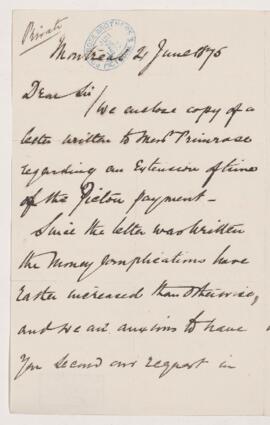 Private
Montreal 2 June 1875
Dear Sir
We enclose copy of a
letter written to Messrs Primrose
regarding an Extension of time
of the Pictou payment –
Since the letter was written
the Money complications have
rather increased than otherwise,
and we are anxious to have
you second our request in